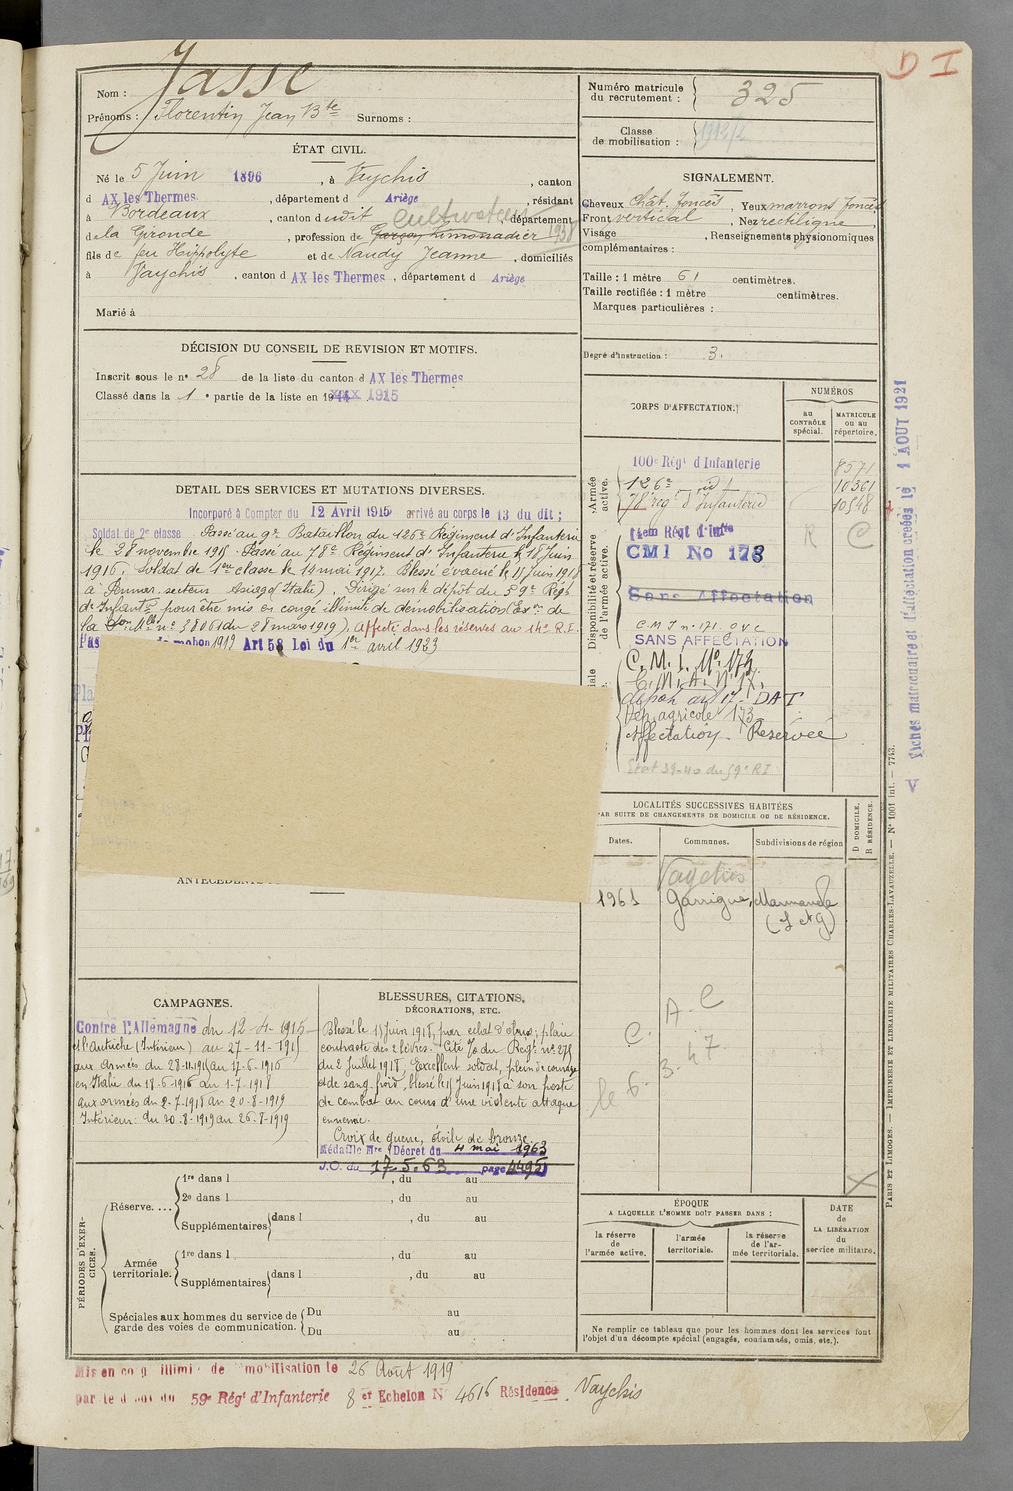 D I
Nom : Jasse
Prénoms : Florentin Jean Bte Surnoms :
Numéro matricule du recrutement : 325
Classe de mobilisation : 1912/2
ÉTAT CIVIL.
Né le 5 Juin 1896, à Vaychis, canton
d AX les Thermes, département d Ariège, résidant
à Bordeaux, canton d udit cultivateur département
de la Gironde, profession de Garçon Limonadier 1938
fils de feu Hippolyte et de Naudy Jeanne, domiciliés
à Vaychis, canton d AX les Thermes, département d Ariège
Marié à
SIGNALEMENT.
Cheveux Chât. foncés, Yeux marrons foncés
Front vertical, Nez rectiligne,
Visage , Renseignements physionomiques
complémentaires :
Taille : 1 mètre 61 centimètres.
Taille rectifiée : 1 mètre centimètres.
Marques particulières :
Degré d'instruction : 3.
DÉCISION DU CONSEIL DE REVISION ET MOTIFS.
Inscrit sous le n° 28 de la liste du canton d AX les Thermes
Classé dans la 1e partie de la liste en 19 1915
DETAIL DES SERVICES ET MUTATIONS DIVERSES.
Incorporé à Compter du 12 Avril 1915 arrivé au corps le 13 du dit ;
Soldat de 2e classe Passé au 9e Bataillon du 126e Régiment d'Infanterie
le 28 novembre 1915 Passé au 78e Régiment d'Infanterie le 18 Juin
1916. Soldat de 1ère classe le 14 mai 1917. Blessé évacué le 15 Juin 1918
à Pennar. secteur Asiago (Italie). Dirigé sur le dépôt du 59e Régt
d'Infante pour être mis en congé illimité de démobilisation (Exon de
la Con Mlle n° 38061 du 28 mars 1919). affecté dans les réserves au 14e R.I.
Art 58 Loi du 1er avril 1923
CORPS D'AFFECTATION.
NUMÉROS
au CONTRÔLE spécial.
MATRICULE ou au répertoire.
Armée active.
100e Régt d'Infanterie 8571
126e id 10361
78e rég. d'Infanterie 10548
R C
Disponibilité et réserve de l'armée active.
14em Régt d'Infte
CMI No 173
Sans Affectation
C.M.I n° 171. O.V.C
SANS AFFECTATION
C. M. I. N° 173.
dépôt du 17e DAT
Dép. agricole 173
Affectation Réservée
Etat 39-40 du 59e RI
LOCALITÉS SUCCESSIVES HABITÉES
PAR SUITE DE CHANGEMENTS DE DOMICILE OU DE RÉSIDENCE.
Dates. Communes. Subdivisions de région
D DOMICILE.
R RÉSIDENCE.
Vaychis
1961 Garrigue, Marmande
(L et G)
A. C
C.
le 6. 3. 47.
CAMPAGNES.
Contre l'Allemagne du 12-4-1915
et l'Autriche (Intérieur) au 27-11-1915
aux armées du 28-11-1915 au 17-6-1916
en Italie du 18-6-1916 au 1-7-1918
aux armées du 2-7-1918 au 20-8-1919
Intérieur : du 20-8-1919 au 26-8-1919
BLESSURES, CITATIONS,
DÉCORATIONS, ETC.
Blessé le 15 Juin 1918, par éclat d'obus ; plaie
contuse des 2 lèvres. Cité à/o du Régt n° 275
du 2 Juillet 1918, Excellent soldat, plein de courage
et de sang-froid, blessé le 15 Juin 1918 à son poste
de combat au cours d'une violente attaque
ennemie.
Croix de guerre, étoile de bronze.
Médaille Mre Décret du 4 mai 1963
J.O. du 17.5.63 page 4495
PÉRIODES D'EXERCICES.
Réserve....
1re dans l , du au
2e dans l , du au
Supplémentaires dans l , du au
Armée territoriale.
1re dans l , du au
Supplémentaires dans l , du au
Spéciales aux hommes du service de garde des voies de communication.
Du au
Du au
ÉPOQUE
A LAQUELLE L'HOMME DOIT PASSER DANS :
la réserve de l'armée active.
l'armée territoriale.
la réserve de l'armée territoriale.
DATE de LA LIBÉRATION du service militaire.
Ne remplir ce tableau que pour les hommes dont les services font
l'objet d'un décompte spécial (engagés, condamnés, omis, etc.).
Mis en congé illimité de démobilisation le 26 Août 1919
par le dépôt du 59e Régt d'Infanterie 8 er Echelon N° 4616 Résidence Vaychis
Fiches matriculaire et d'affectation créées le 1 AOUT 1921
PARIS ET LIMOGES. — IMPRIMERIE ET LIBRAIRIE MILITAIRES CHARLES-LAVAUZELLE. — N° 1001 int. — 7743.